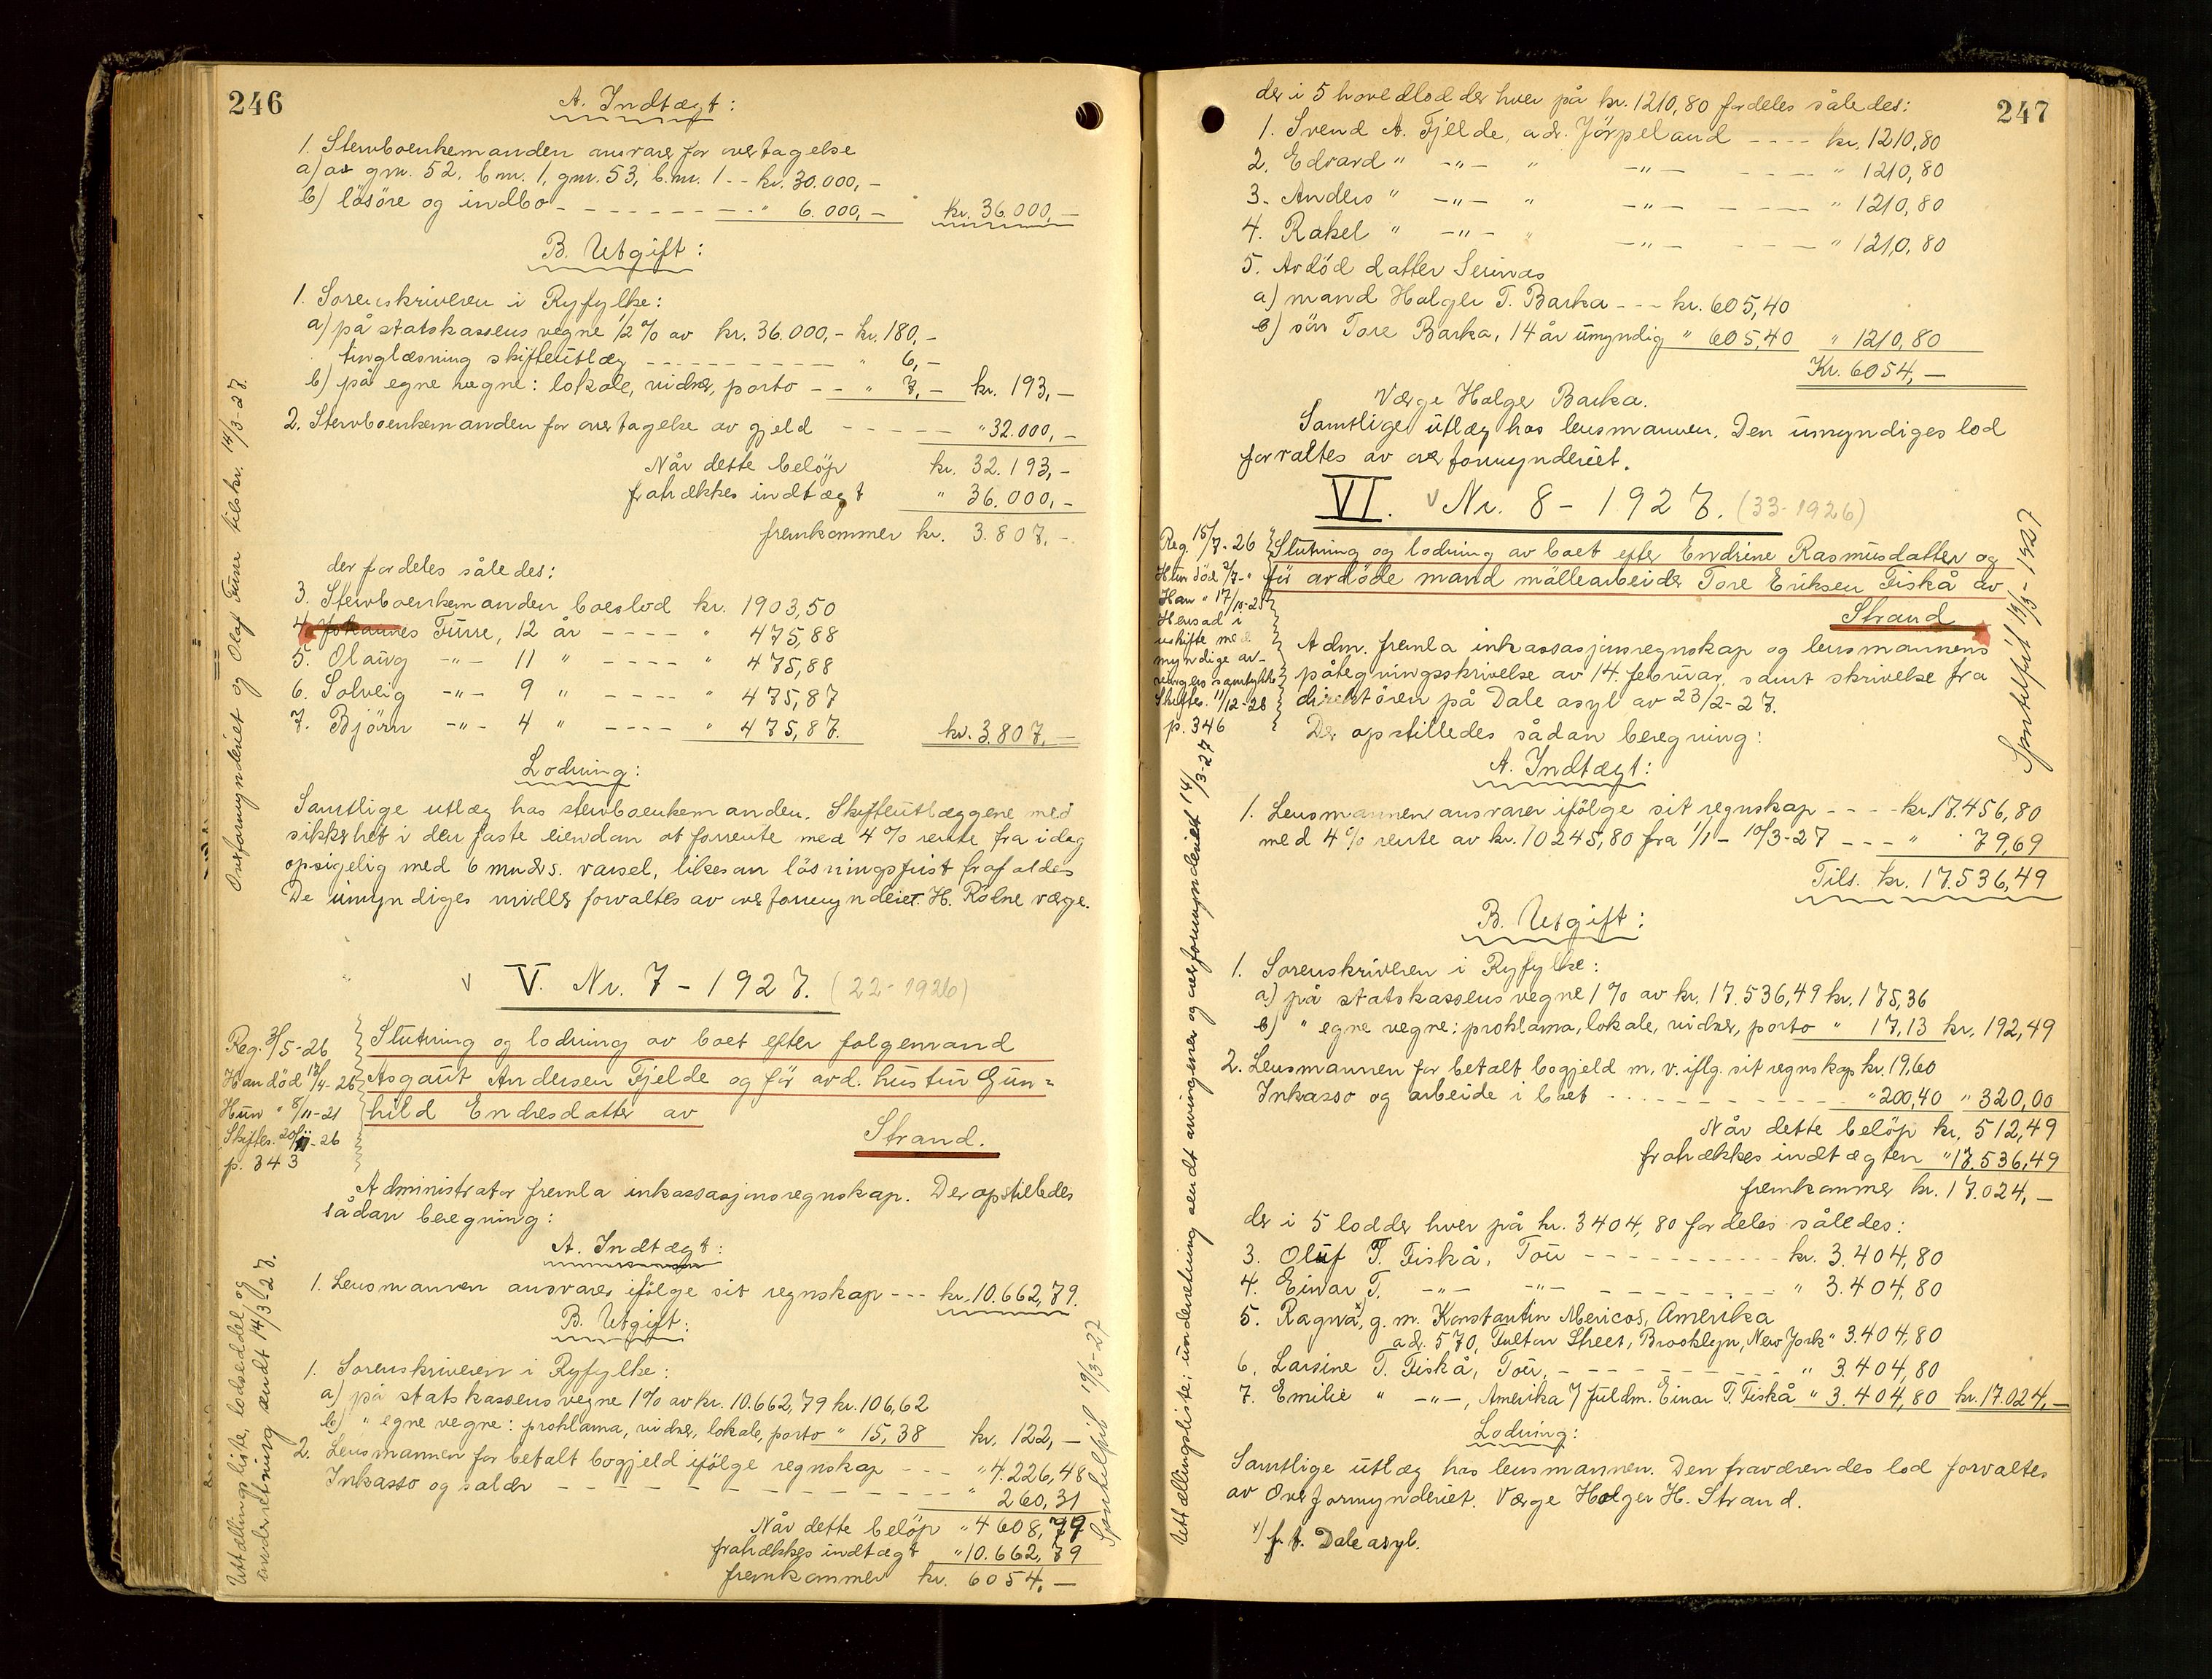 246
A. Indtægt:
1. Stervboenkemanden ansvarer for overtagelse
a) av gnr. 52, b.nr. 1, gnr. 53, b.nr. 1 -- kr. 30.000,-
b) lösöre og indbo - - - - - - - - - " 6.000,- kr. 36.000,-
B. Utgift:
1. Sorenskriveren i Ryfylke:
a) på statskassens vegne 1/2 % av kr. 36.000,- kr. 180,-
tinglæsning skifteutlæg - - - - - - - - " 6,-
b) på egne vegne: lokale, vidner, porto - - " 7,- kr. 193,-
2. Stervboenkemanden for overtagelse av gjeld - - - - - " 32.000,-
Når dette belöp kr. 32.193,-
fratrækkes indtægt " 36.000,-
fremkommer kr. 3.807,-
der fordeles således:
3. Stervboenkemanden boeslod kr. 1903,50
4. Johannes Furre, 12 år - - - - " 475,88
5. Olaug -"- 11 " - - - - " 475,88
6. Solveig -"- 9 " - - - - " 475,87
7. Björn -"- 4 " - - - - " 475,87. kr. 3.807,-
Lodning:
Samtlige utlæg hos stervboenkemanden. Skifteutlæggene med
sikkerhet i den faste eiendom at forrente med 4 % rente fra idag
opsigelig med 6 mnders. varsel, likesom lösningsfrist frafaldes
De umyndiges midler forvaltes av overformynderiet. H. Rölne værge.
Overformynderiet og Olaf Furre tilskr. 14/3-27.
V. Nr. 7 - 1927. (22-1926)
Reg. 3/5-26
Han död 17/4-26
Hun " 8/11-21
Skiftes. 20/11-26
p. 343
Slutning og lodning av boet efter folgemand
Asgaut Andersen Fjelde og för avd. hustru Gun=
hild Endresdatter av
Strand.
Administrator fremla inkassasjonsregnskap. Der opstilledes
sådan beregning:
A. Indtægt:
1. Lensmannen ansvarer ifölge sit regnskap --- kr. 10.662,79.
B. Utgift:
1. Sorenskriveren i Ryfylke:
a) på statskassens vegne 1 % av kr. 10.662,79 kr. 106,62
b) " egne vegne: proklama, vidner, lokale, porto " 15,38 kr. 122,-
2. Lensmannen for betalt bogjeld ifölge regnskap - - - " 4.226,48
Inkasso og salær - - - - - - - - - - - - " 260,31
Når dette belöp " 4608,79
fratrækkes indtægt " 10.662,79
fremkommer kr. 6054,-
Uttællingsliste, lodseddel og
underretning sendt 14/3-27.
Sportelfrit 19/3-27
247
der i 5 hovedlodder hver på kr. 1210,80 fordeles således:
1. Svend A. Fjelde, adr. Jörpeland - - - - kr. 1210,80
2. Edvard " -"- " -"- - - - - " 1210,80
3. Anders " -"- " -"- - - - - " 1210,80
4. Rakel " -"- " -"- - - - - " 1210,80
5. Avdöd datter Serinas
a) mand Holger T. Barka - - - kr. 605,40
b) sön Tore Barka, 14 år umyndig " 605,40 " 1210,80
Kr. 6054,-
Værge Holger Barka.
Samtlige utlæg hos lensmannen. Den umyndiges lod
forvaltes av overformynderiet.
VI. Nr. 8 - 1927. (33-1926)
Reg. 15/7-26
Hun död 2/7-"
Han " 17/10-25
Hensad i
uskifte med
myndige ar-
vingers samtykke
Skiftes. 11/12-28
p. 346
Slutning og lodning av boet efter Endrine Rasmusdatter og
för avdöde mand möllearbeider Tore Eriksen Fiskå av
Strand
Adm. fremla inkassasjonsregnskap og lensmannens
påtegningsskrivelse av 14. februar, samt skrivelse fra
direktören på Dale asyl av 23/2-27.
Der opstilledes sådan beregning:
A. Indtægt:
1. Lensmannen ansvarer ifölge sit regnskap - - - - kr. 17.456,80
med 4 % rente av kr. 10245,80 fra 1/1 - 10/3-27 - - - " 79,69
Tils. kr. 17.536,49
B. Utgift:
1. Sorenskriveren i Ryfylke:
a) på statskassens vegne 1 % av kr. 17.536,49 kr. 175,36
b) " egne vegne: proklama, lokale, vidner, porto " 17,13 kr. 192,49
2. Lensmannen for betalt bogjeld m. v. iflg. sit regnskap kr. 19,60
Inkasso og arbeide i boet - - - - - - - - - " 200,40 " 320,00
Når dette belöp kr. 512,49
fratrækkes indtægten " 17.536,49
fremkommer kr. 17.024,-
der i 5 lodder hver på kr. 3404,80 fordeles således:
3. Oluf T. Fiskå, Tou - - - - - - - - - kr. 3.404,80
4. Einar T. -"- -"- - - - - - - - " 3.404,80
5. Ragna x), g. m. Konstantin Mericos, Amerika
adr. 570, Fulton Street, Brooklyn, New York " 3.404,80
6. Larsine T. Fiskå, Tou, - - - - - - - - - " 3.404,80
7. Emilie " -"-, Amerika / fuldm. Einar T. Fiskå " 3.404,80 kr. 17.024,-
Lodning:
Samtlige utlæg hos lensmannen. Den fraværendes lod forvaltes
av Overformynderiet. Værge Holger H. Strand.
x) f. t. Dale asyl.
Uttællingsliste; underretning sendt arvingene og overformynderiet 14/3-27
Sportelfrit 19/3-1927